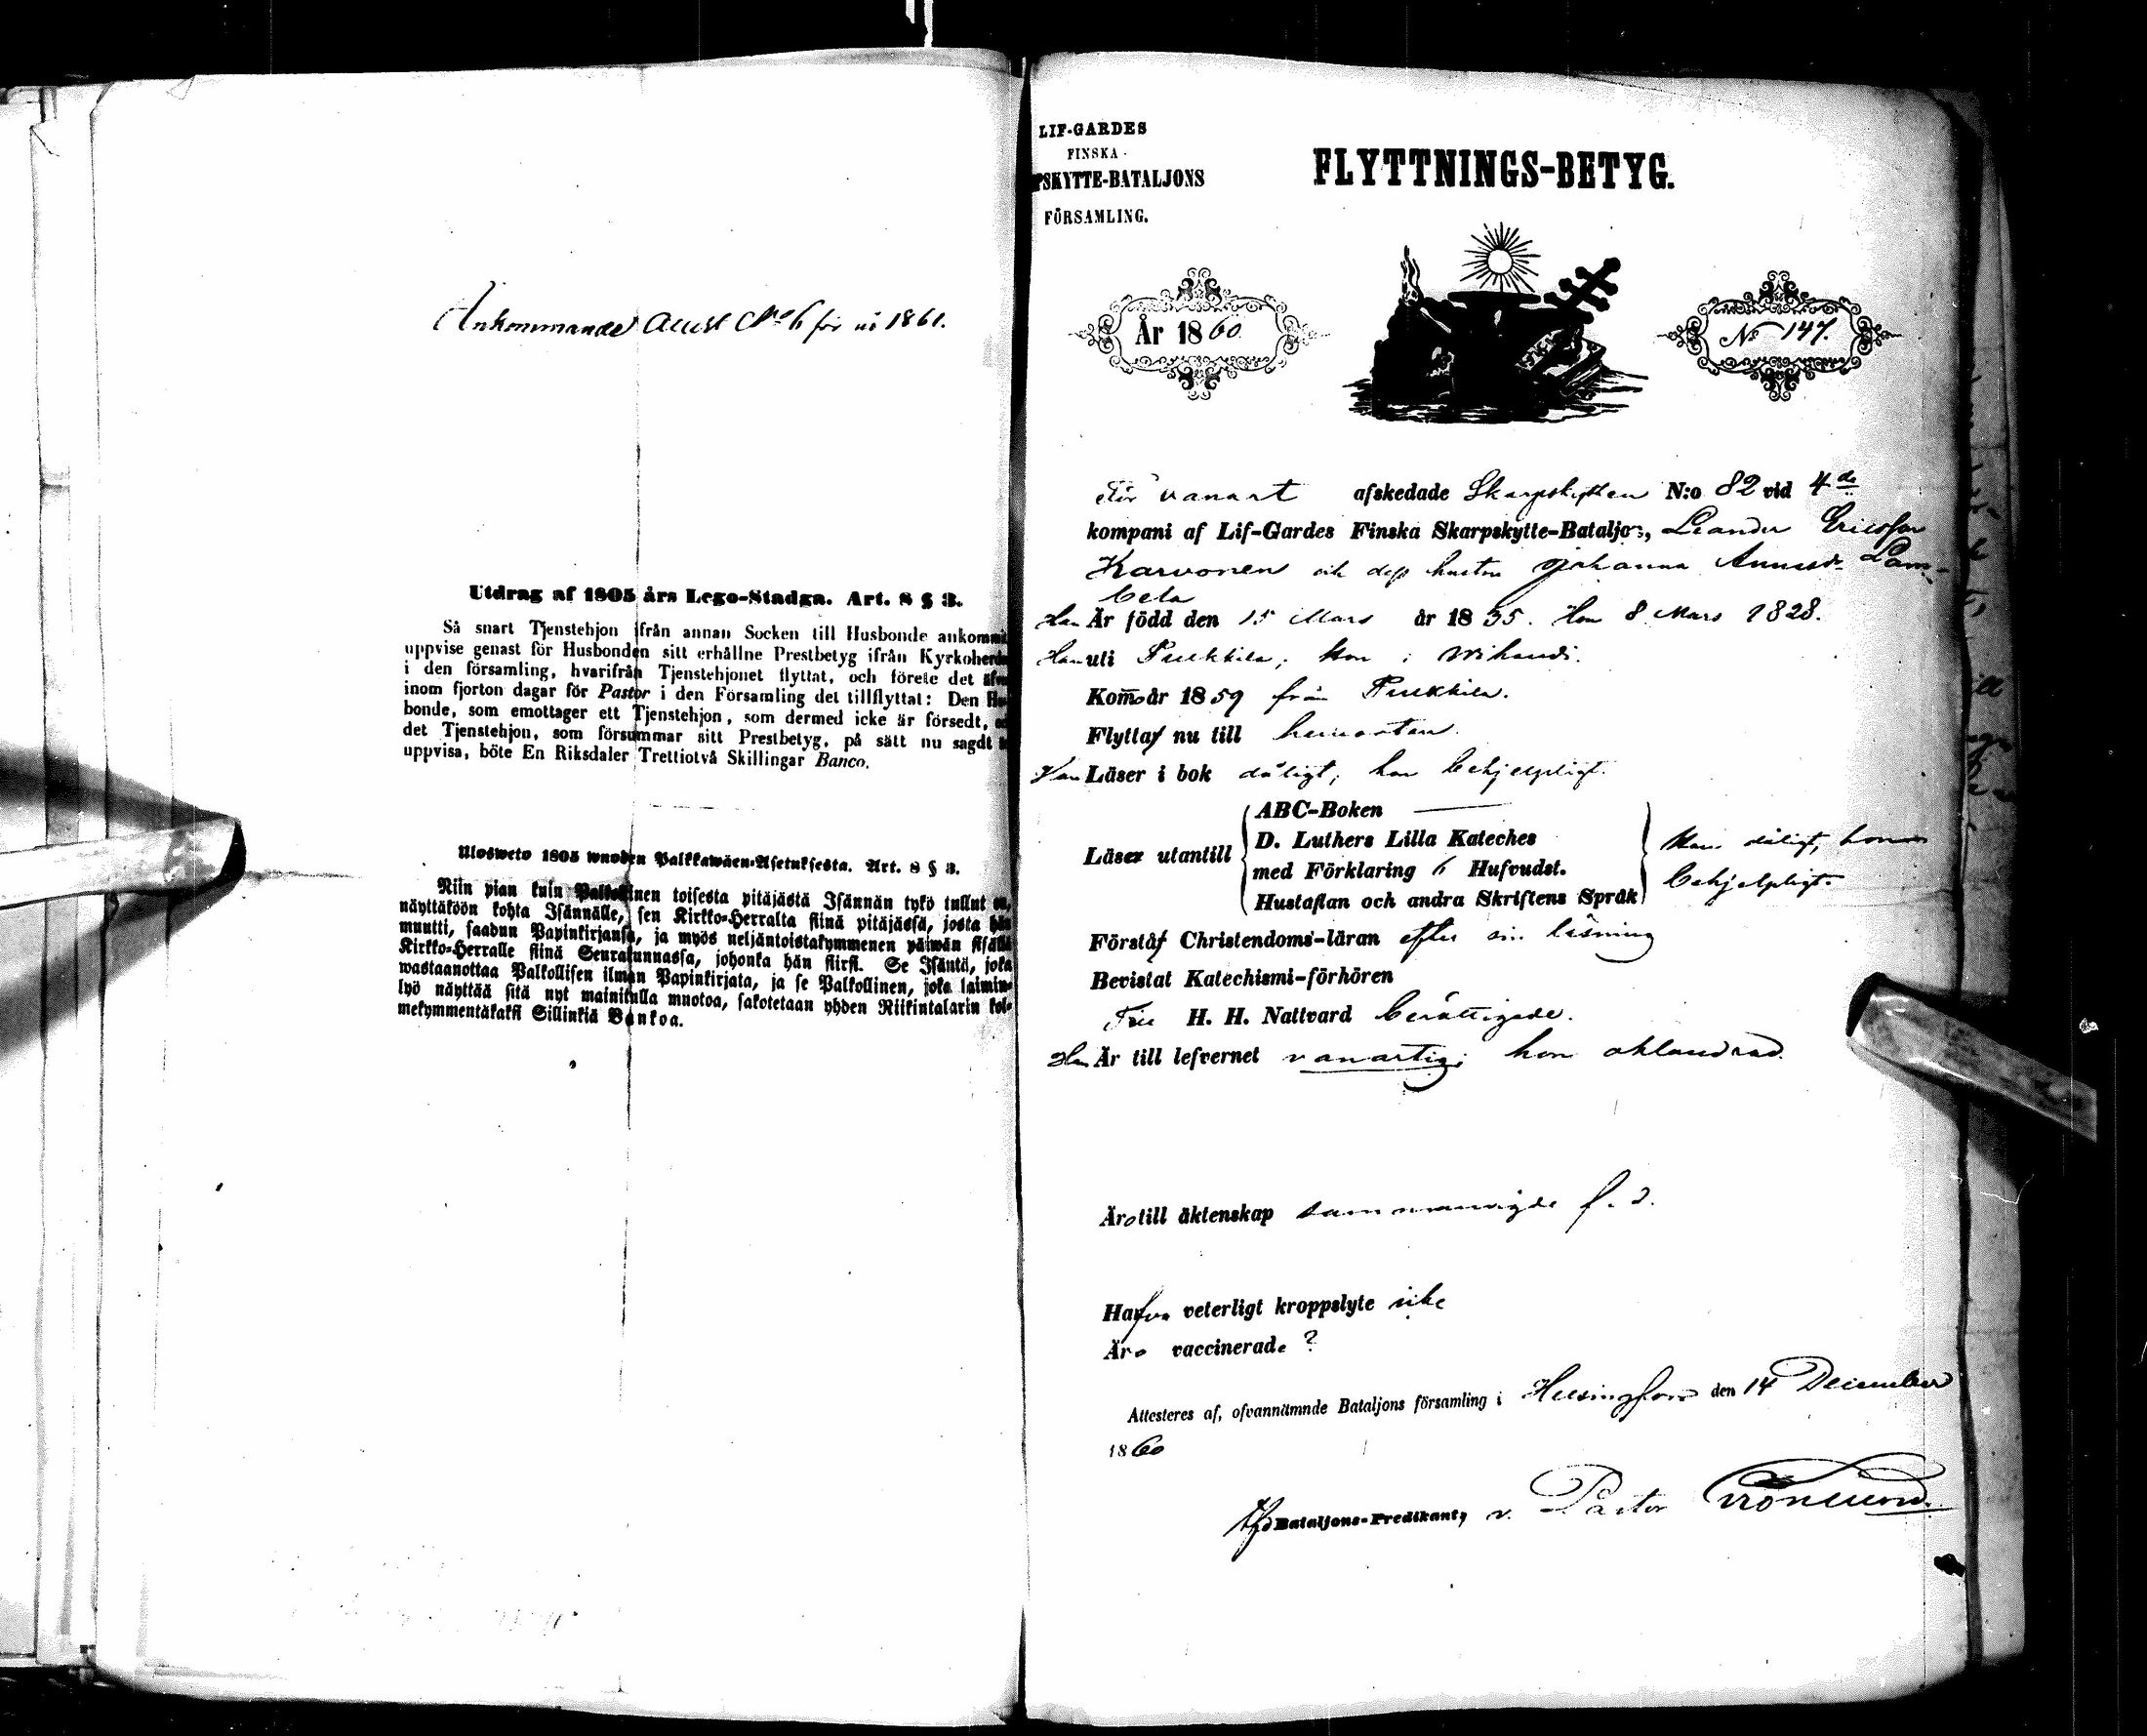 Ankommande Attest No 6 för år 1861.
Utdrag af 1805 års Lego-Stadga. Art. 8 § 3.
Så snart Tjenstehjon ifrån annan Socken till Husbonde ankommit
uppvise genast för Husbonden sitt erhållne Prestbetyg ifrån Kyrkoherden
i den församling, hvarifrån Tjenstehjonet flyttat, och förete det äfven
inom fjorton dagar för Pastor i den Församling det tillflyttat: Den Hus-
bonde, som emottager ett Tjenstehjon, som dermed icke är försedt,
det Tjenstehjon, som försummar sitt Prestbetyg, på sätt nu sagdt
uppvisa, böte En Riksdaler Trettiotvå Skillingar Banco.
Ulosweto 1805 wuoden Palkkawäen-Asetuksesta. Art. 8 § 3.
Niin pian kuin Palkollinen toisesta pitäjästä Isännän tykö tullut on,
näyttäköön kohta Isännälle, sen Kirkko-Herralta siinä pitäjässä, josta hän
muutti, saadun Papinkirjansa, ja myös neljäntoistakymmenen päiwän sisällä
Kirkko-Herralle siinä Seurakunnassa, johonka hän siirsi. Se Isäntä, joka
wastaanottaa Palkollisen ilman Papinkirjata, ja se Palkollinen, joka laimin-
lyö näyttää sitä nyt mainitulla muotoa, sakotetaan yhden Riikintalarin kol-
mekymmentäkaksi Sillinkiä Bankoa.
LIF-GARDES
FINSKA
PSKYTTE-BATALJONS
FÖRSAMLING.
FLYTTNINGS-BETYG.
År 1860
No 147.
För vanart afskedade Skarpskytten N:o 82 vid 4de
kompani af Lif-Gardes Finska Skarpskytte-Bataljon, Leander Ericsson
Karvonen och dess hustru Johanna Annasdr Lam-
bela
Han Är född den 15 Mars år 1835. Hon 8 Mars 1828.
Han uti Pulkkila; hon i Wihandi.
Kom år 1859 från Pulkkila.
Flytta nu till hemorten.
Han Läser i bok dåligt; hon behjelpligt.
ABC-Boken
Läser utantill
D. Luthers Lilla Kateches
med Förklaring 6 Hufvudst.
Hustaflan och andra Skriftens Språk
Han dåligt, hon
behjelpligt.
Förstå Christendoms-läran efter sin läsning
Bevistat Katechismi-förhören
Till H. H. Nattvard berättigade.
Han Är till lefvernet vanartig; hon oklandrad.
Äro till äktenskap sammanvigde f. d.
Hafva veterligt kroppslyte icke
Äro vaccinerade ?
Attesteras af, ofvannämnde Bataljons församling i Helsingfors den 14 December
1860
Bataljons-Predikant, v. Pastor